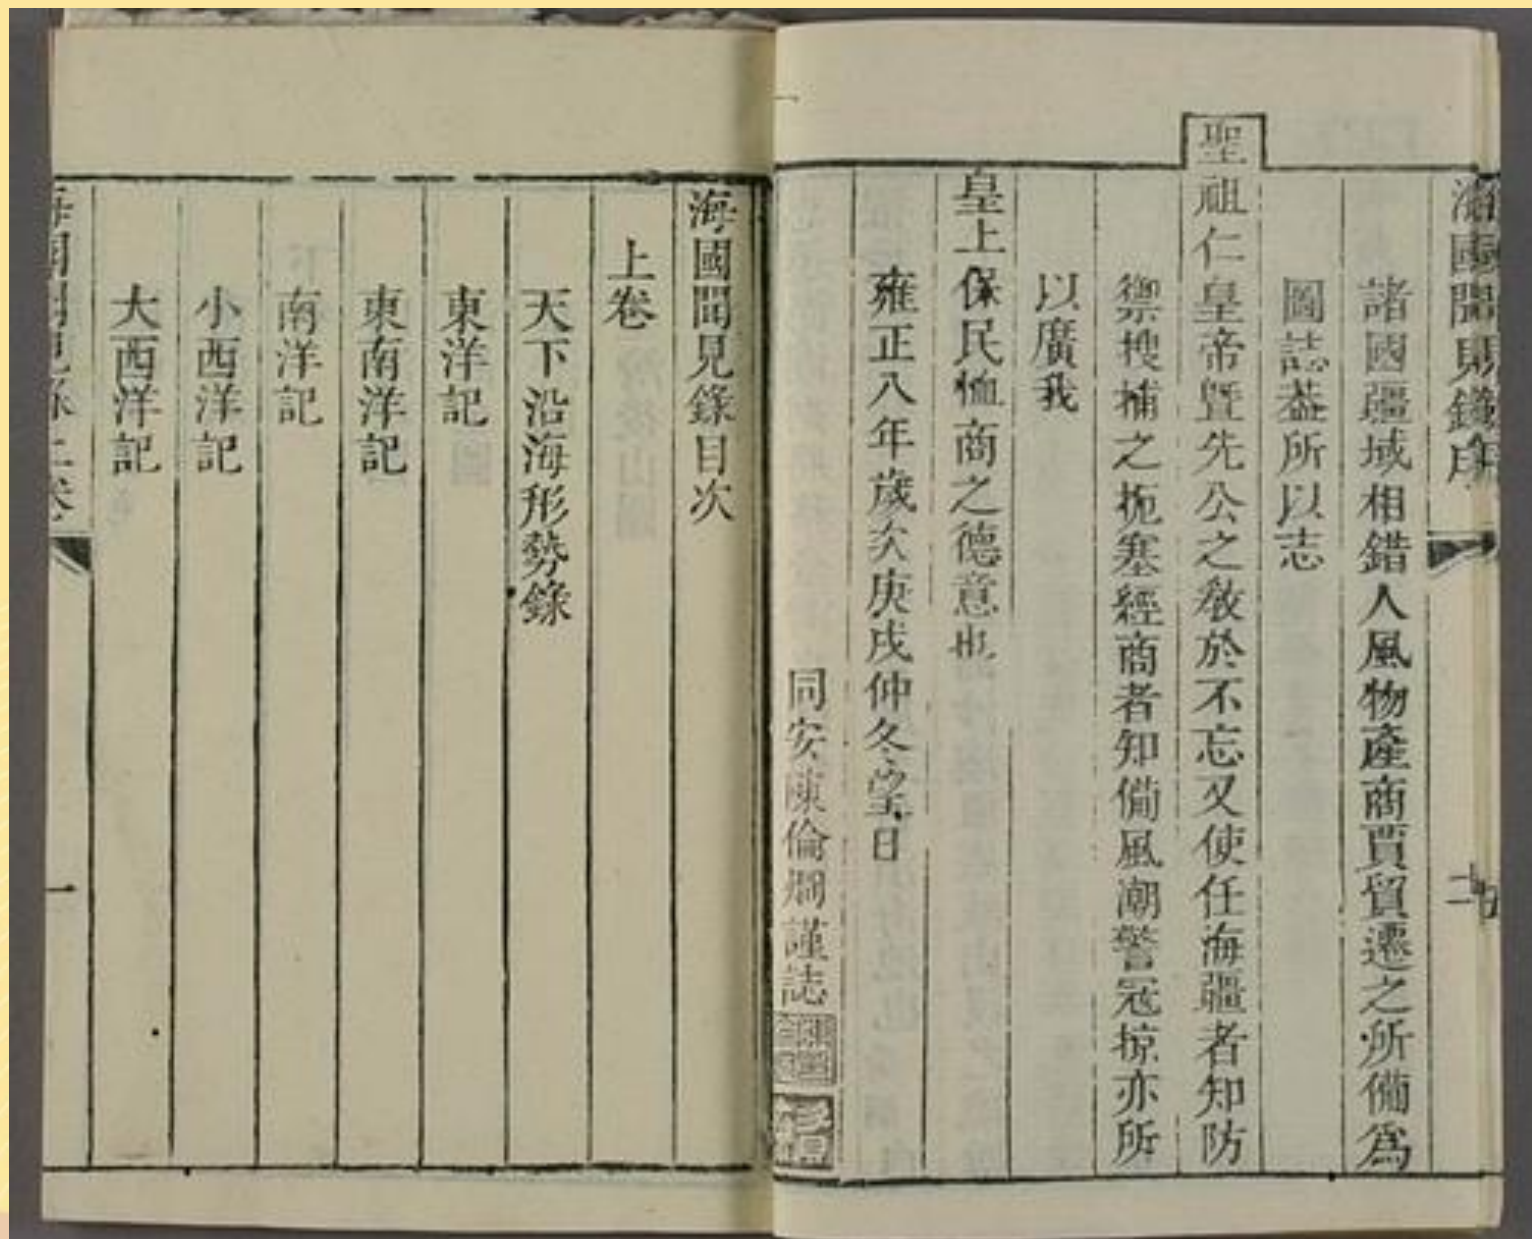 海國聞見錄序
諸國疆域相錯人風物產商賈貿遷之所備爲
圖誌葢所以志
聖祖仁皇帝曁先公之敎於不忘又使任海疆者知防
禦搜捕之扼塞經商者知備風潮警寇掠亦所
以廣我
皇上保民恤商之德意也
雍正八年歲次庚戌仲冬望日
同安陳倫烱謹誌
海國聞見錄目次
上卷
天下沿海形勢錄
東洋記
東南洋記
南洋記
小西洋記
大西洋記
海國聞見錄上卷
一